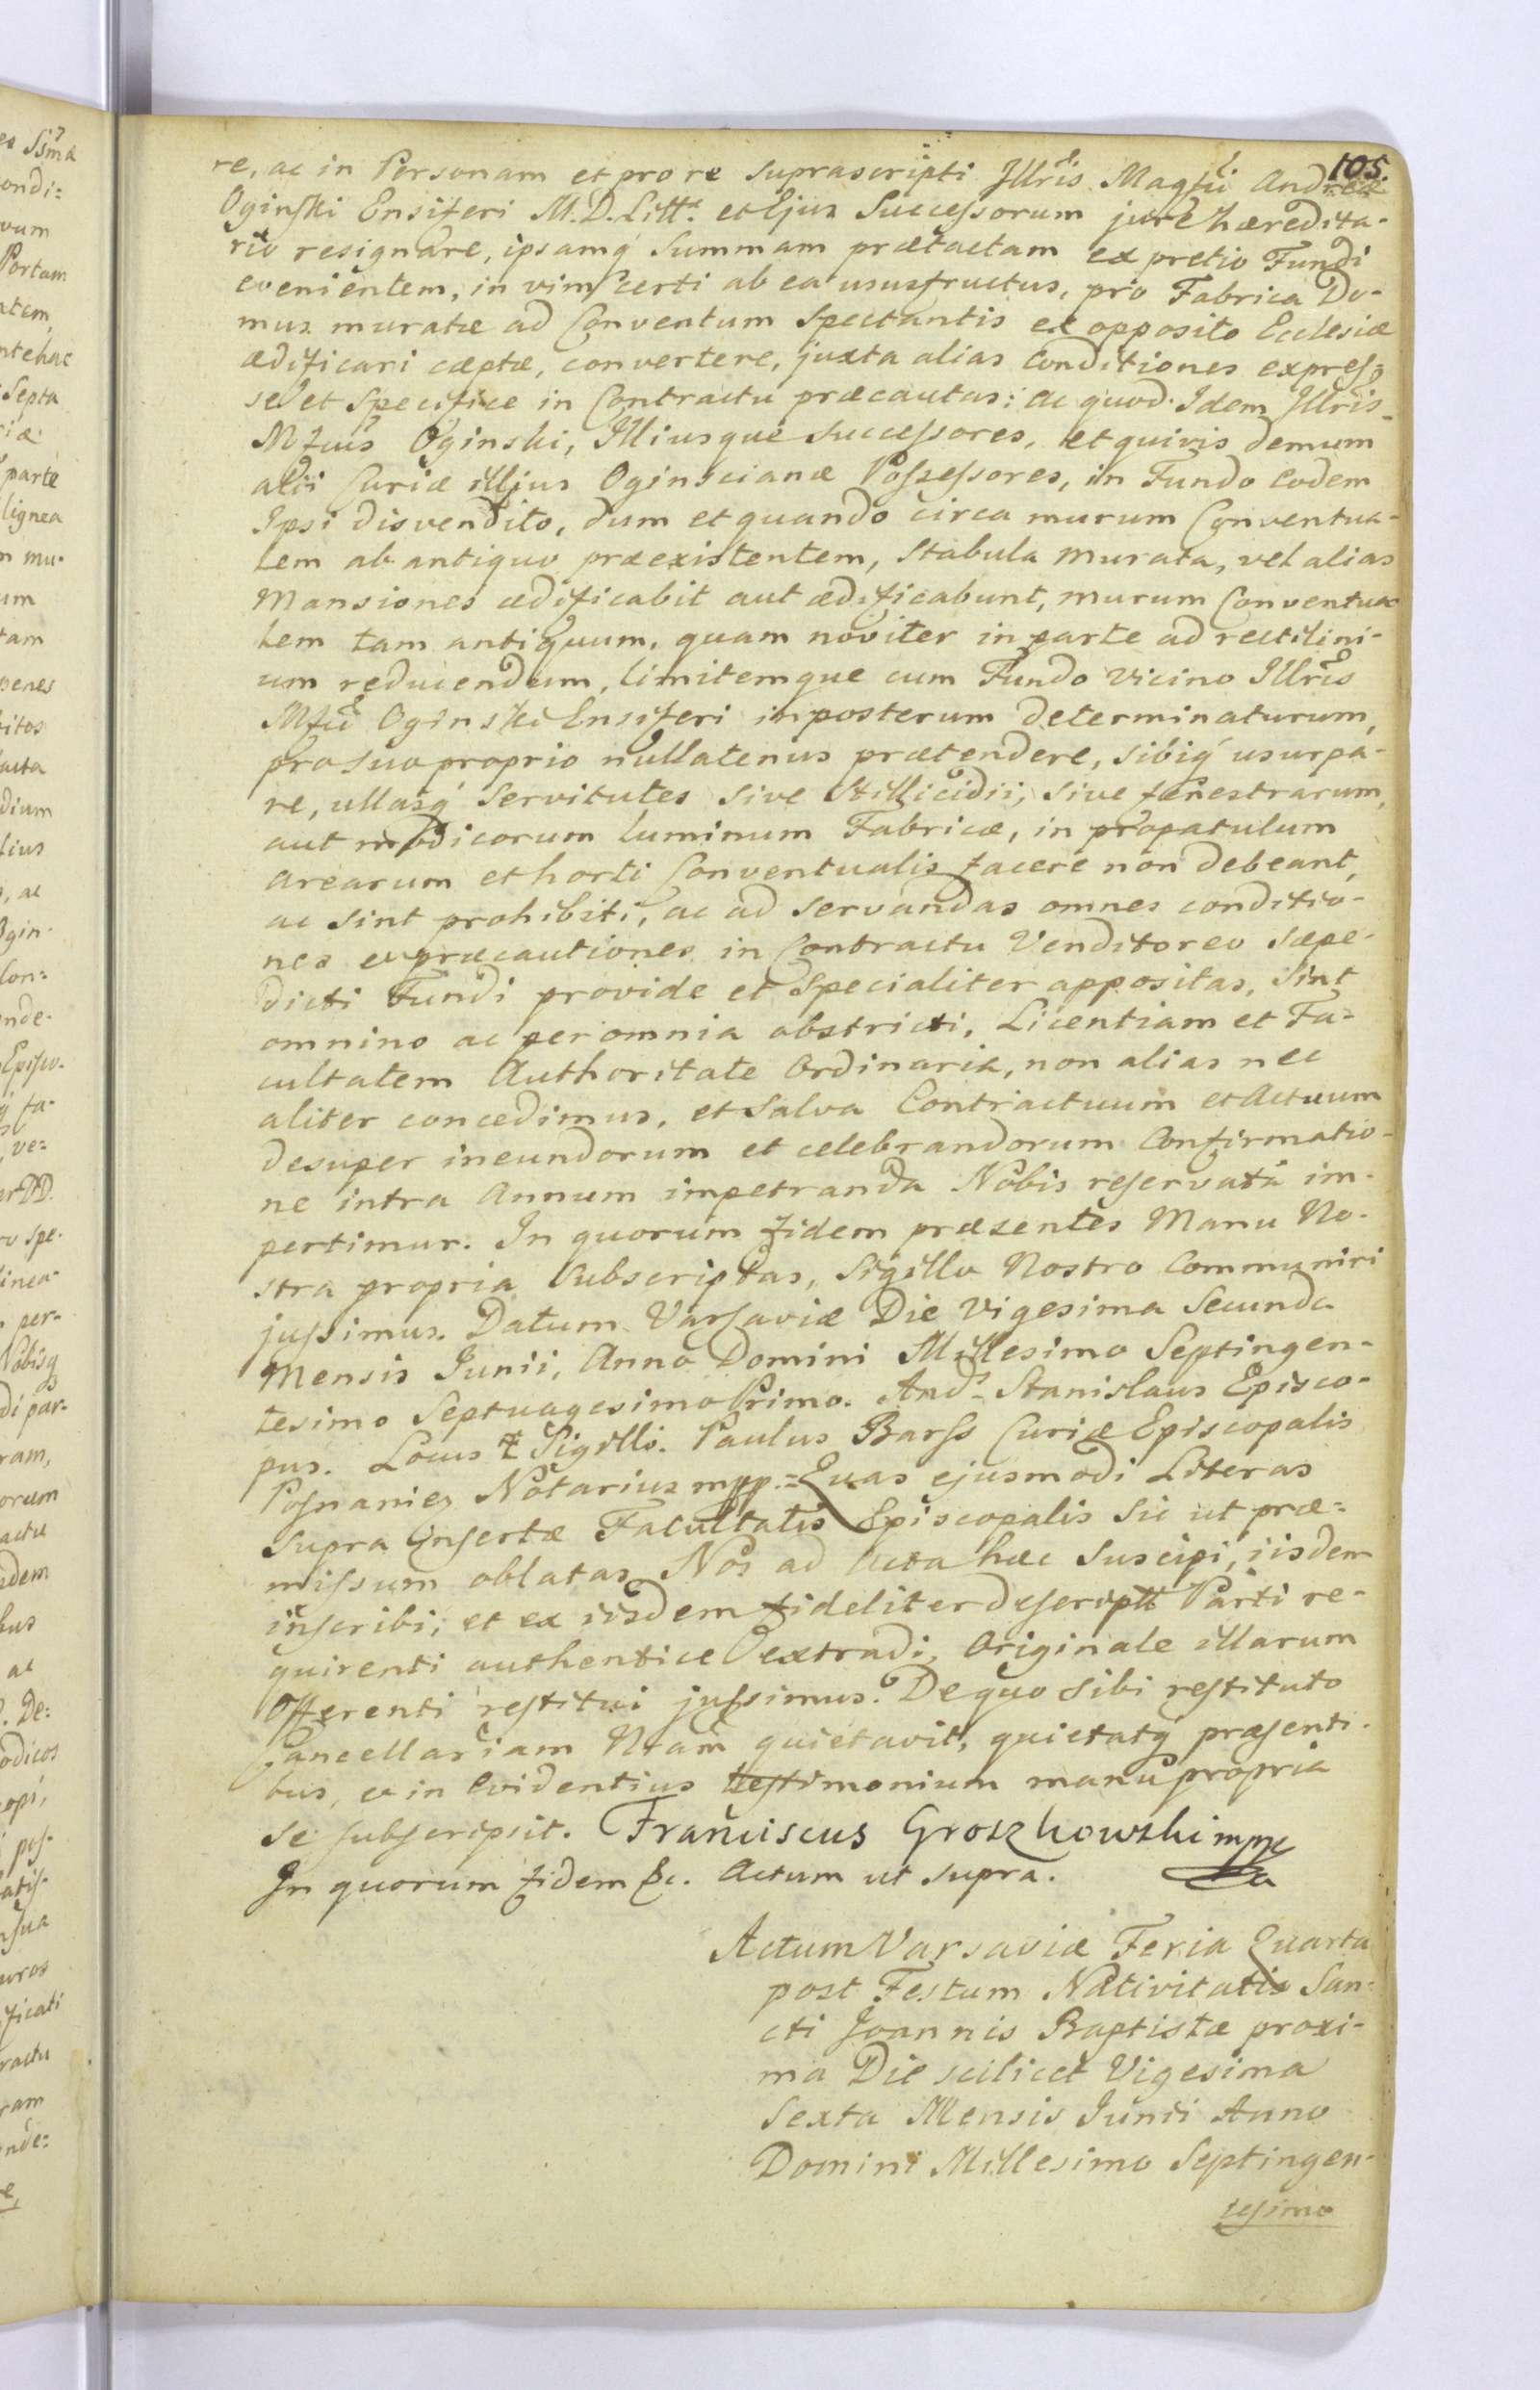 105.
re, ac in Personam et pro re suprascripti Illris Magfci Andreæ
Oginski Ensiferi M. D. Litt. et Ejus Successorum jure hæredita-
rio resignare, ipsamq́ Summam prætactam ex pretio Fundi
evenientem, in vim certi ab ea ususfructus, pro Fabrica Do-
mus muratæ ad Conventum Spectantis ex opposito Ecclesiæ
ædificari cæptæ, convertere, juxta alias Conditiones expresse
sed et Specifice in Contractu præcautas: ac quod Idem Illris
Mfcus Oginski, Illiusque Successores, et quivis demum
alii Curiæ illius Oginscianæ Possessores, in Fundo Eodem
Ipsi disvendito, dum et quando circa murum Conventua-
lem ab antiquo præexistentem, Stabula murata, vel alias
Mansiones ædificabit aut ædificabunt, murum Conventua
lem tam antiquum, quam noviter in parte ad rectilini-
um reducendum, limitemque cum Fundo Vicino Illris
Mfci Oginski Ensiferi inposterum determinaturum,
pro suo proprio nullatenus prætendere, sibiq́ usurpa-
re, ullasq́ Servitutes sive Stillicidii, sive fenestrarum,
aut modicorum luminum Fabricæ, in propatulum
arearum et horti Conventualis facere non debeant,
ac sint prohibiti, ac ad servandas omnes conditio-
nes et præcautiones in Contractu Venditoreo Sæpe-
dicti Fundi provide et Specialiter appositas, Sint
omnino ac per omnia obstricti, Licentiam et Fa-
cultatem Authoritate Ordinaria, non alias nec
aliter concedimus, et Salva Contractuum et Actuum
desuper ineundorum et celebrandorum Confirmatio-
ne intra Annum impetranda Nobis reservata im-
pertimur. In quorum fidem præsentes Manu No-
stra propria Subscriptas, Sigillo Nostro Communiri
jussimus. Datum Varsaviæ Die Vigesima Secunda
Mensis Junii, Anno Domini Millesimo Septingen-
tesimo Septuagesimo Primo. And. Stanislaus Episco-
pus. Locus ‡ Sigilli. Paulus Barss Curiæ Episcopalis
Posnanien Notarius mpp. = Quas ejusmodi Literas
Supra insertæ Facultatis Episcopalis Sic ut præ-
missum oblatas Nos ad Acta hæc Suscipi, iisdem
inscribi, et ex iisdem fideliter descriptt Parti re-
quirenti authentice extradi, Originale illarum
Offerenti restitui jussimus. De quo sibi restituto
Cancellariam Nram quietavit, quietatq́ præsenti-
bus, et in Evidentius testimonium manu propria
se subscripsit. Franciscus Groszkowski mpp
In quorum fidem &c. Actum ut supra.
Actum Varsaviæ Feria Quarta
post Festum Nativitatis San-
cti Joannis Baptistæ proxi-
ma Die scilicet Vigesima
Sexta Mensis Junii Anno
Domini Millesimo Septingen-
tesimo